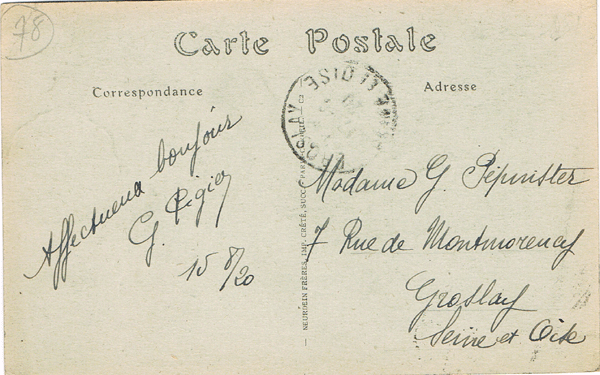 78
Carte Postale
Correspondance
Adresse
Affectueux bonjour
G.
15 8/20
Madame G. Pépinster
7 Rue de Montmorency
Groslay
Seine et Oise
GROSLAY
OISE
NEURDEIN FRÈRES, IMP. CRÉTÉ, SUCC. PARIS